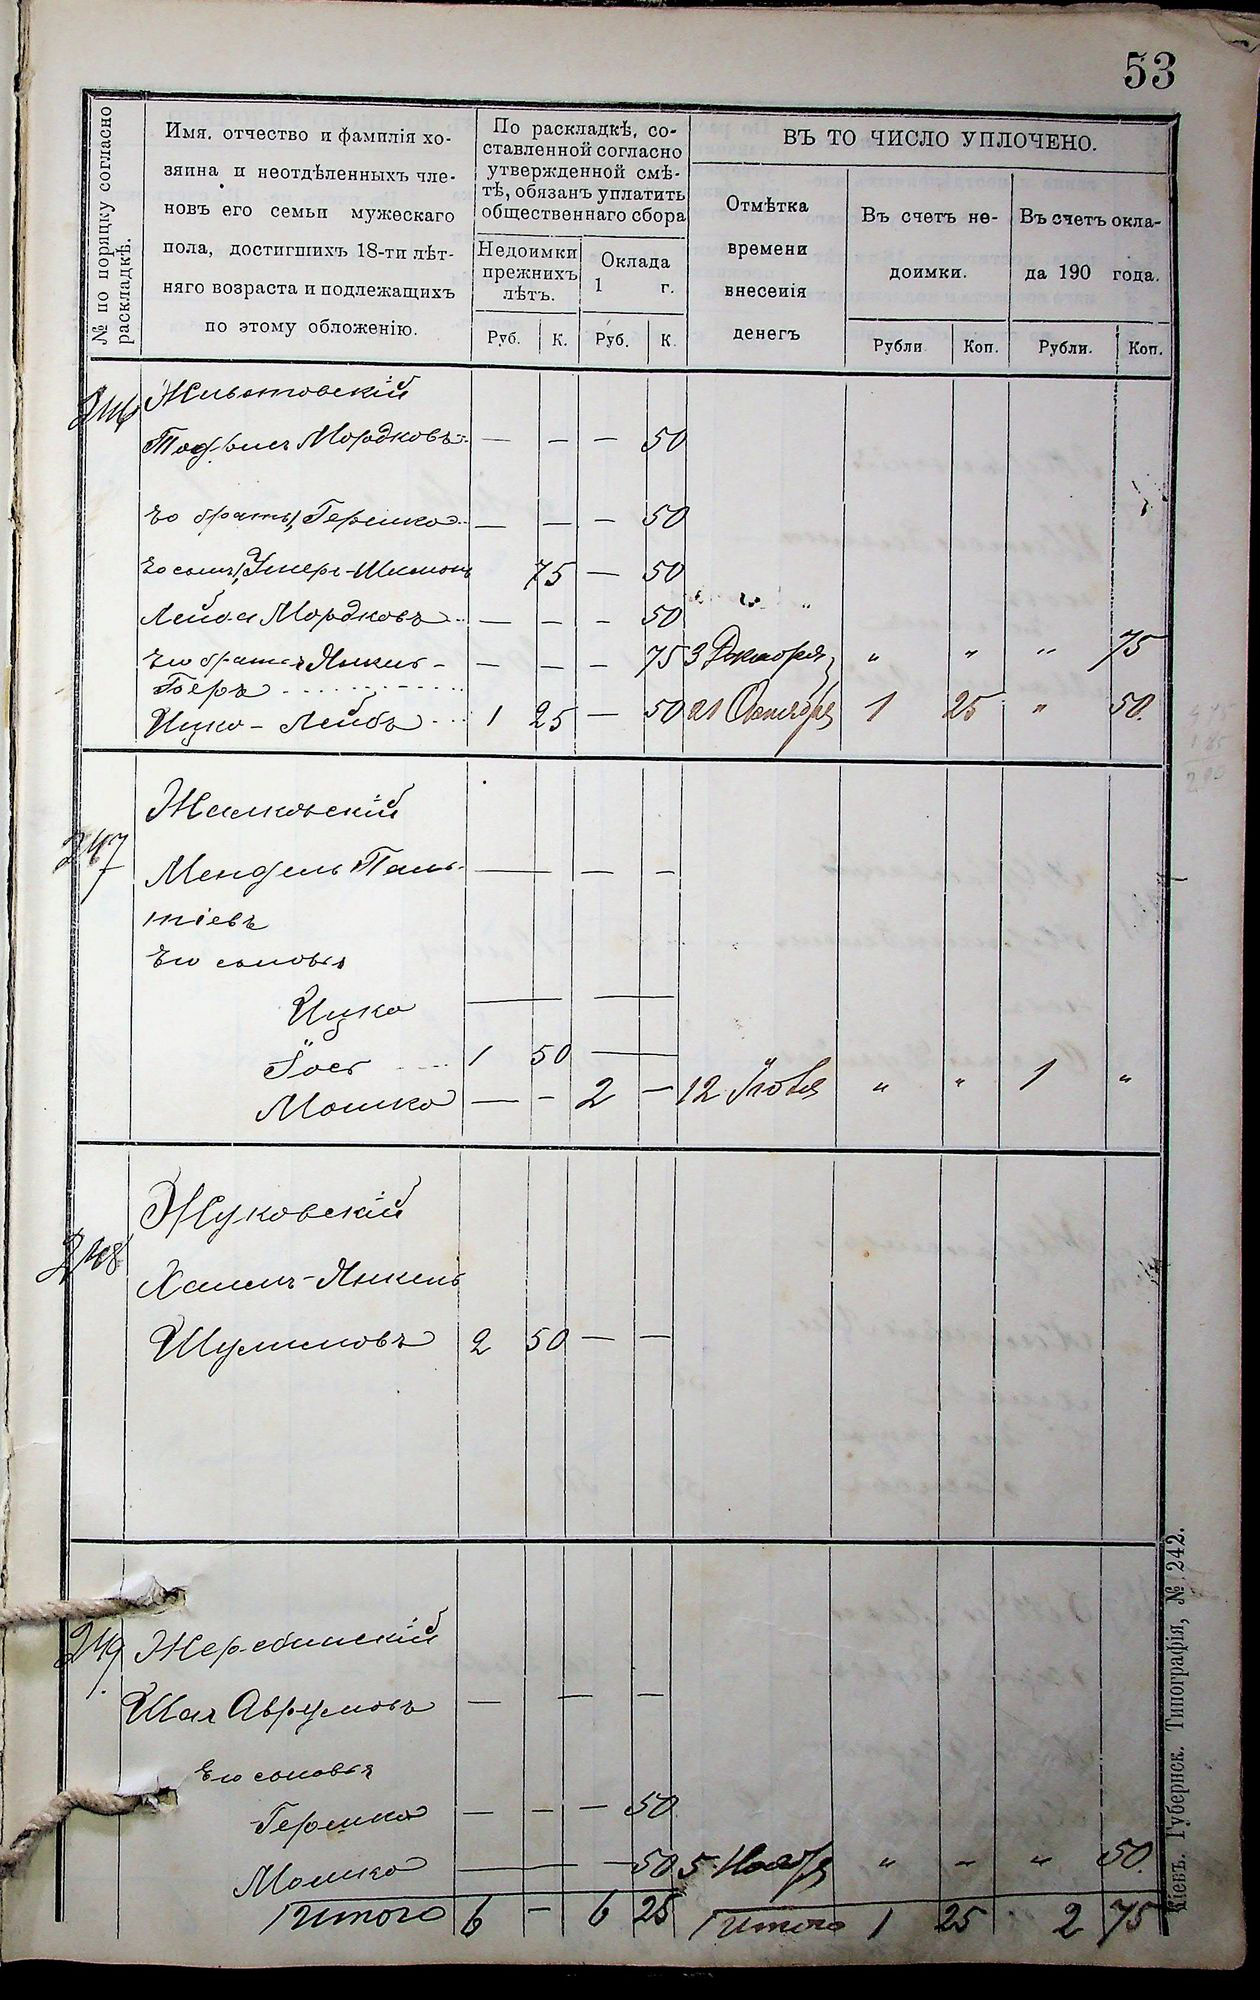 53
№ по порядку согласно
раскладкѣ.
Имя, отчество и фамилія хо-
зяина и неотдѣленныхъ чле-
новъ его семьи мужескаго
пола, достигшихъ 18-ти лѣт-
няго возраста и подлежащихъ
по этому обложенію.
По раскладкѣ, со-
ставленной согласно
утвержденной смѣ-
тѣ, обязанъ уплатить
общественнаго сбора
Недоимки
прежнихъ
лѣтъ.
Оклада
1 г.
Руб. К. Руб. К.
ВЪ ТО ЧИСЛО УПЛОЧЕНО.
Отмѣтка
времени
внесенія
денегъ
Въ счетъ не-
доимки.
Въ счетъ окла-
да 190 года.
Рубли Коп. Рубли. Коп.
246 Животовскій
Мордковъ — — — 50
братъ Гершко — — — 50
75 — 50
Лейба Мордковъ — — — 50
Его братья Янкель- — — — 75 3 Декабря " " " 75
Беръ
Ицко-Лейбъ 1 25 — 50 21 Октября 1 25 " 50.
247
Мендель Паль-
тіевъ
Его сыновья
Ицко
Іосъ 1 50 —
Мошко — — 2 — 12 Іюля " " 1 "
248 Жуковскій
Хаимъ-Янкель
Шулимовъ 2 50 — —
249 Жеребинскій
Шая Аврумовъ — — —
Его сыновья
Гершко — — — 50
Мошко — — 50 5 Ноября " " " 50.
Итого 6 — 6 25 Итого 1 25 2 75
Кіевъ. Губернск. Типографія, № 242.